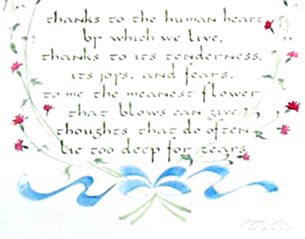 thanks to the human heart
by which we live,
thanks to its tenderness,
its joys, and fears,
to me the meanest flower
that blows can give
thoughts that do often
lie too deep for tears